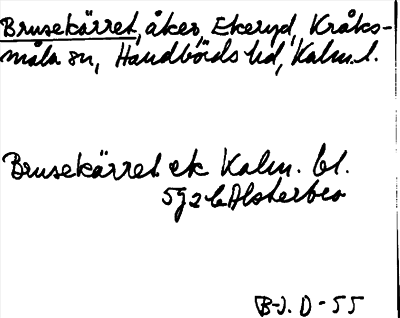 Brusekärret, åker, Ekeryd, Kråks-
måla sn, Handbörds hd, Kalm. l.
Brusekärret ek Kalm. bl.
5g2b Alsterbro
B-J. D-55